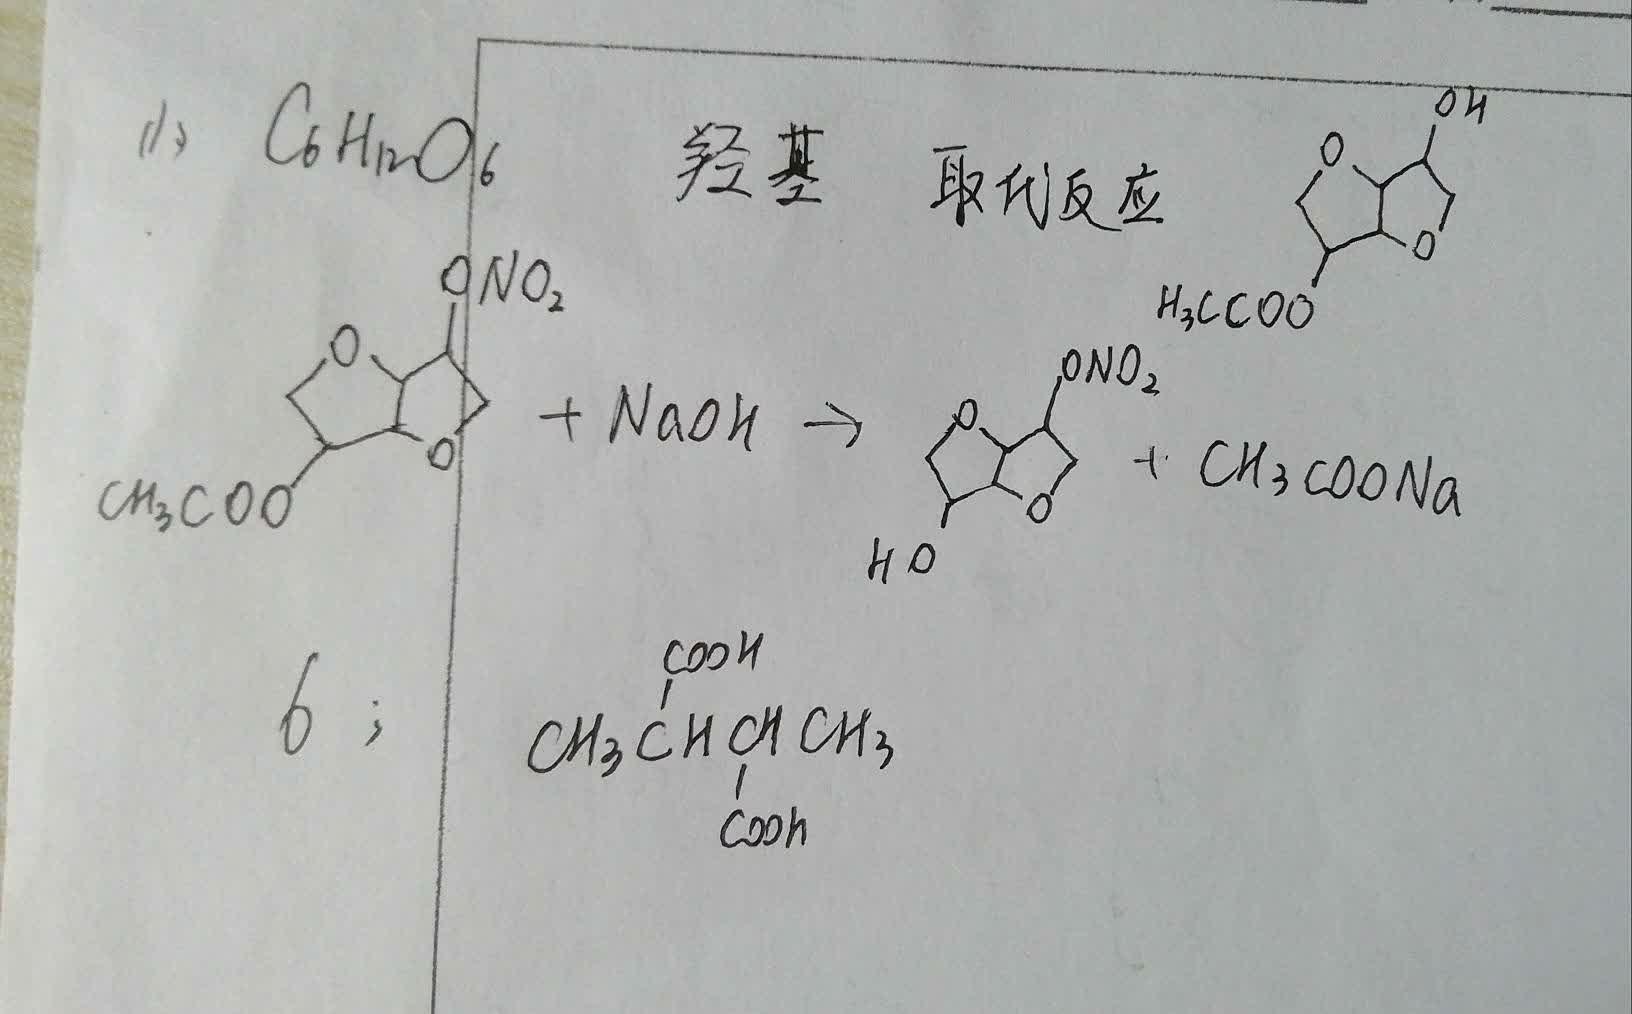 (1) C6H12O6 羟基 取代反应
OH
O
O
H3CCOO
ONO2
O
O
CH3COO
+ NaOH →
ONO2
O
O
HO
+ CH3COONa
6;
COOH
CH3CHCHCH3
COOH